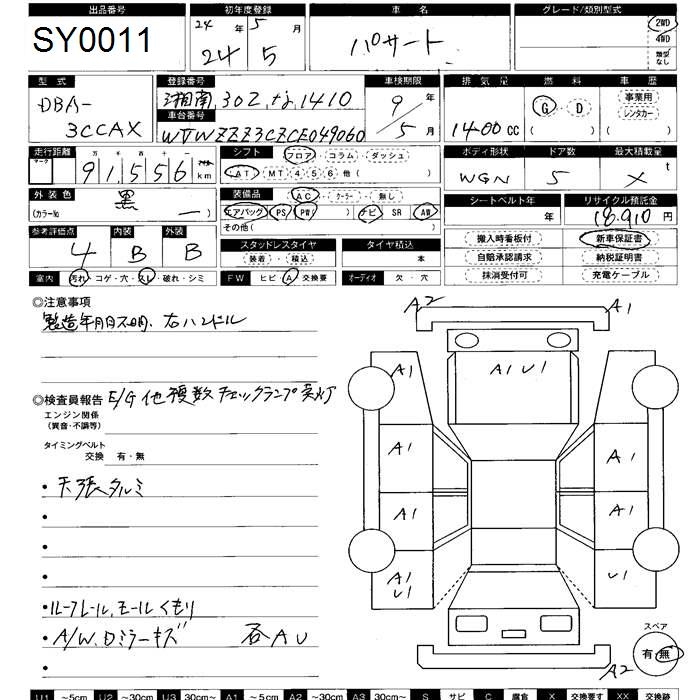 出品番号 初年度登録 車名 グレード/類別型式
SY0011 24年 5月 パサート 2WD
24 5 4WD
類型なし
型式 登録番号 車検期限 排気量 燃料 車歴
DBA- 湘南 302 1410 9年 G・D 事業用
車台番号 レンタカー
3CCAX WVWZZZ3CZCE049060 5月 1400 CC ( ) ( )
走行距離 シフト フロア・コラム・ダッシュ ボディ形状 ドア数 最大積載量
マーク 十万 千 百 十 一
91556 km AT・MT 4 5 6 他 ( ) WGN 5 X t
外装色 黒 装備品 AC・クーラー・無し シートベルト年 リサイクル預託金
(カラーNo - ) エアバッグ PS PW ナビ SR AW 年 18,910円
その他 ( )
参考評価点 内装 外装 搬入時看板付 新車保証書
4 B B スタッドレスタイヤ タイヤ積込 自賠承認請求 納税証明書
装着・積込 本 抹消受付可 充電ケーブル
室内 汚れ・コゲ・穴・スレ・破れ・シミ FW ヒビ・A・交換要 オーディオ 欠・穴
◎注意事項
製造年月日不明、右ハンドル
◎検査員報告 E/G他複数チェックランプ点灯
エンジン関係
(異音・不調等)
タイミングベルト
交換 有・無
・天張タルミ
・ルーフレール、モールくもり
・A/W、Dミラーキズ 各AU
A2 A1
A1 A1U1 A1
A1 A1
A1 A1
A1
U1 U1
スペア
有・無
A2
U1 ~5cm U2 ~30cm U3 30cm~ A1 ~5cm A2 ~30cm A3 30cm~ S サビ C 腐食 X 交換要す XX 交換跡